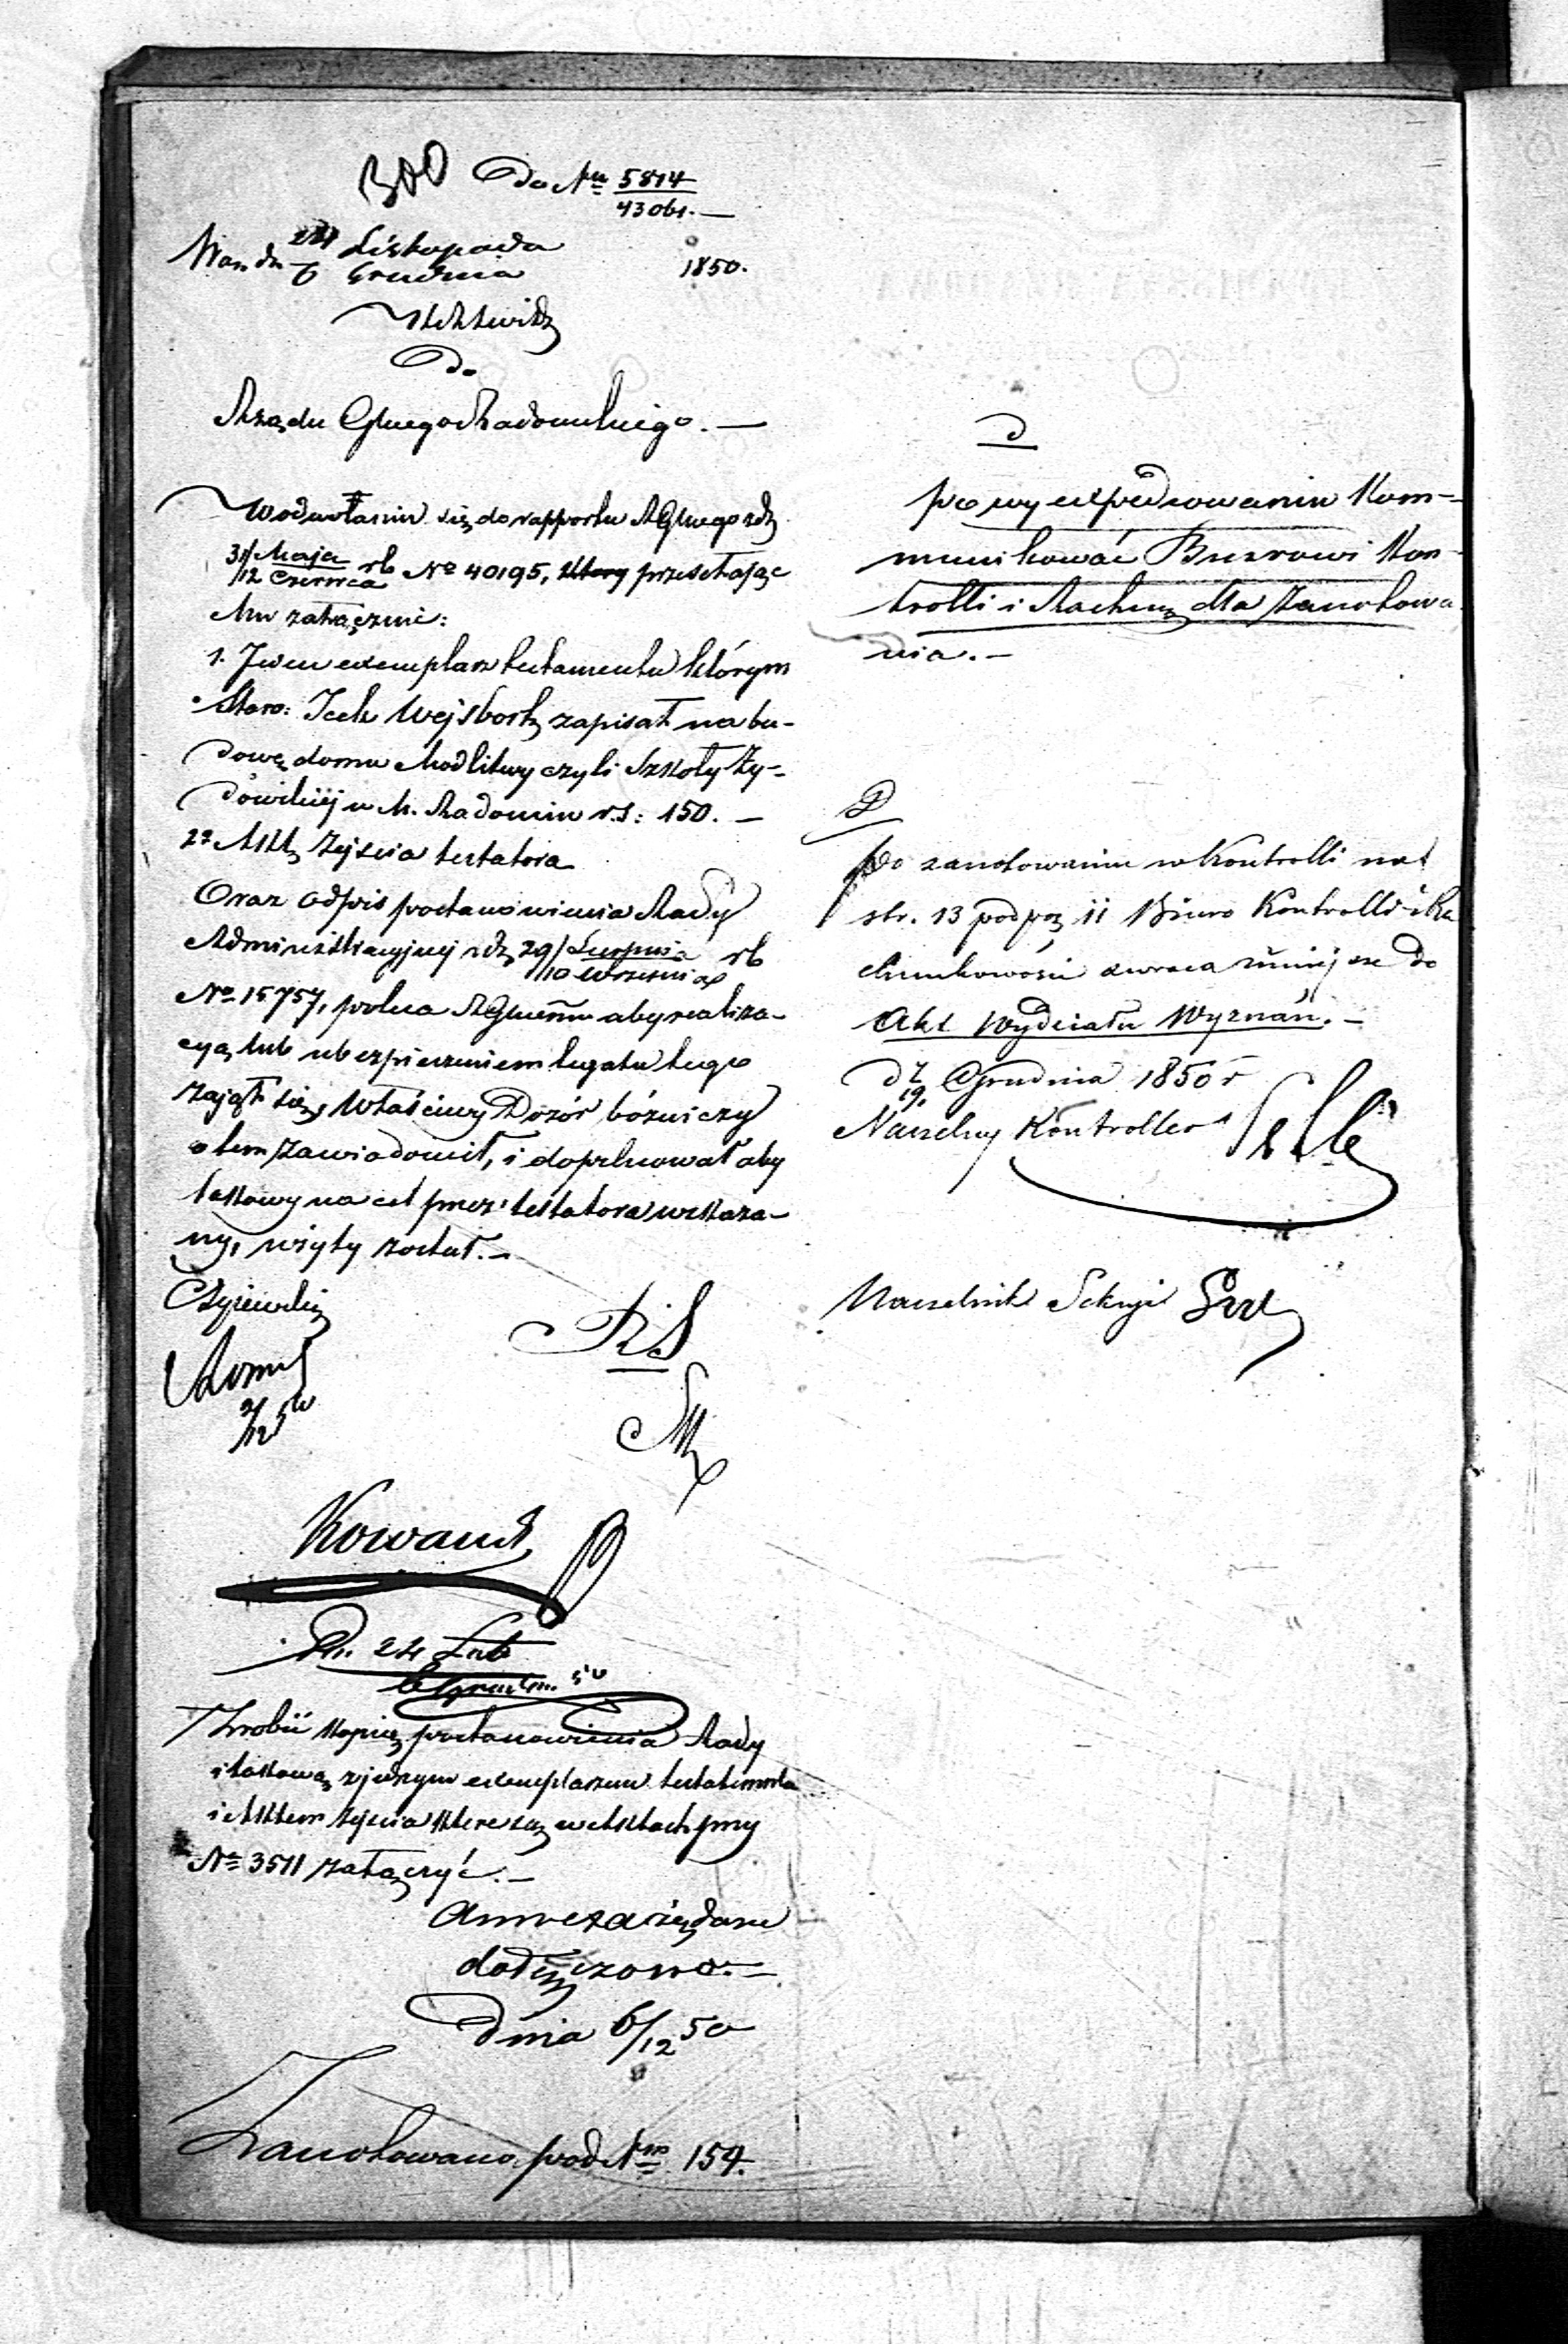 300 do Nru 5814/43061. —
War. dn 24 Listopada / 6 Grudnia 1850.
Do
Rządu Głuego Radomskiego. —
W odwołaniu się do rapportu RGłuego z d.
31/12 Maja/Czerwca rb No 40195, który przesełając
Mu załącznie:
1. Jeden exemplarz testamentu którym
Staro: Icek Wejsbort zapisał na bu-
dowę domu Modlitwy czyli Szkoły Ży-
dowskiej w M. Radomiu r.s: 150. —
2o Akt zejścia testatora
Oraz odpis postanowienia Rady
Administracyjnej z d. 29/10 Sierpnia/Września rb
No 15757, poleca RGłuemu aby realiza-
cyą lub ubezpieczeniem legatu tego
zajął się, właściwy Dozór bóżniczy
o tem zawiadomił, i dopilnował aby
takowy na cel przez testatora wskaza-
ny, użyty został. —
RS
2/12 50
Kowand
Dn. 24 List
6 Grudn. 50
Zrobić kopię postanowienia Rady
i takową z jednym exemplarzem testamentu
i Aktem zejścia które są w aktach przy
No 3511 załączyć. —
Annexa żądane
dołączono. —
Dnia 6/12 50
Zanotowano pod Nrm 154.
D
po wyexpedyowaniu Kom-
munikować Biurowi Kon-
trolli i Rachun, dla Zanotowa
nia. —
D
Po zanotowaniu w Kontrolli na
str. 13 pod poz 11 Biuro Kontrolli i Ra
chunkowości zwraca niniejsze do
Akt Wydziału Wyznań. —
d 7/19 Grudnia 1850 r
Naczelny Kontroller
Naczelnik Sekcyi